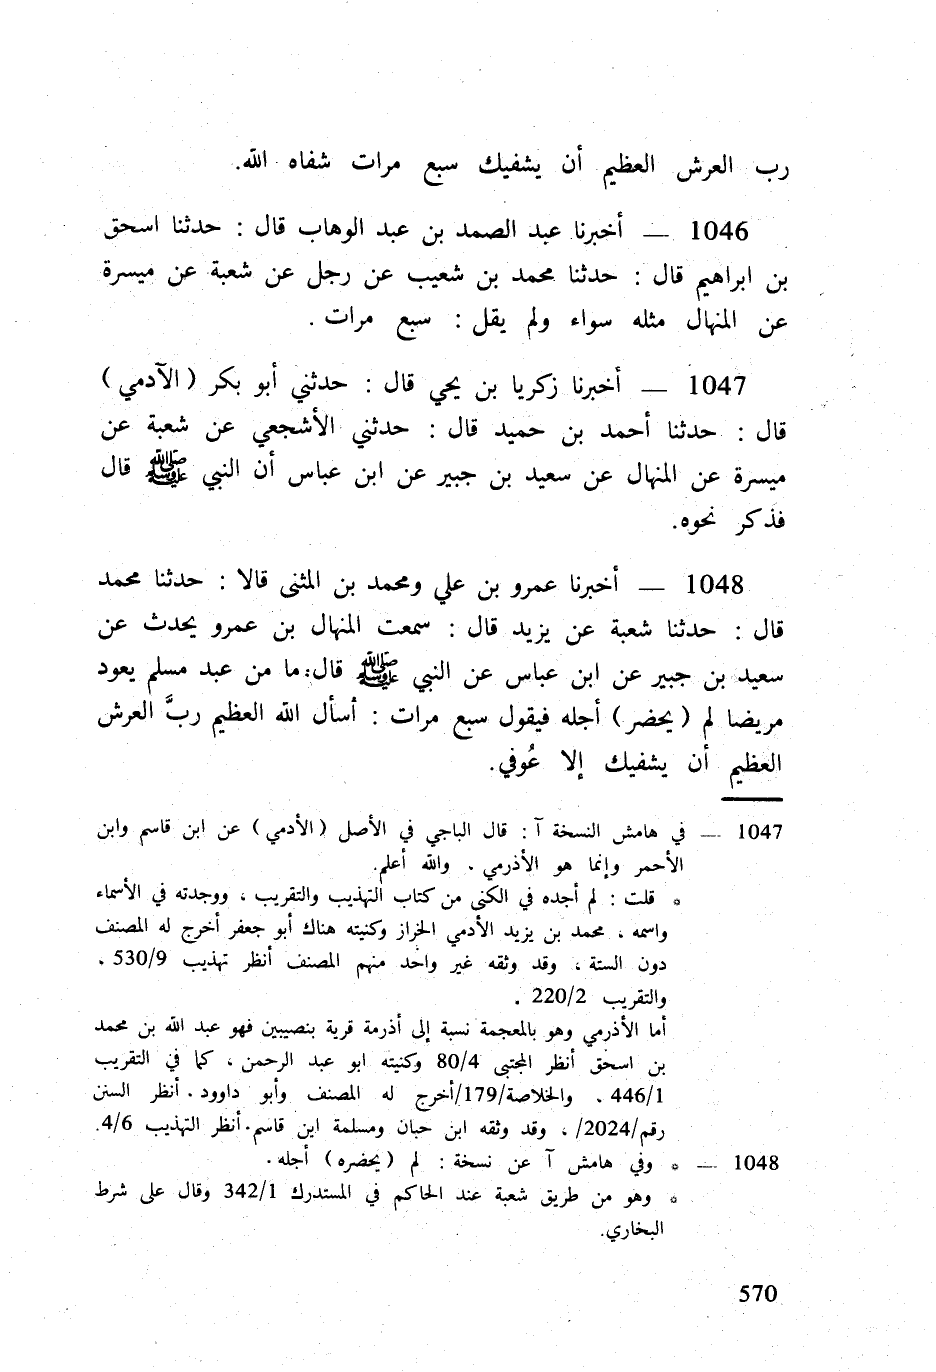 رب العرش العظيم أن يشفيك سبع مرات شفاه الله.
1046 — أخبرنا عبد الصمد بن عبد الوهاب قال : حدثنا اسحق
بن ابراهيم قال : حدثنا محمد بن شعيب عن رجل عن شعبة عن ميسرة
عن المنهال مثله سواء ولم يقل : سبع مرات .
1047 — أخبرنا زكريا بن يحي قال : حدثني أبو بكر ( الآدمي )
قال : حدثنا أحمد بن حميد قال : حدثني الأشجعي عن شعبة عن
ميسرة عن المنهال عن سعيد بن جبير عن ابن عباس أن النبي ﷺ قال
فذكر نحوه.
1048 — أخبرنا عمرو بن علي ومحمد بن المثنى قالا : حدثنا محمد
قال : حدثنا شعبة عن يزيد قال : سمعت المنهال بن عمرو يحدث عن
سعيد بن جبير عن ابن عباس عن النبي ﷺ قال: ما من عبد مسلم يعود
مريضا لم ( يحضر ) أجله فيقول سبع مرات : أسأل الله العظيم ربَّ العرش
العظيم أن يشفيك إلا عُوفي.
1047 — في هامش النسخة آ : قال الباجي في الأصل ( الأدمي ) عن ابن قاسم وابن
الأحمر وإنما هو الأذرمي . والله أعلم.
* قلت : لم أجده في الكنى من كتاب التهذيب والتقريب ، ووجدته في الأسماء
واسمه ، محمد بن يزيد الأدمي الخراز وكنيته هناك أبو جعفر أخرج له المصنف
دون الستة ، وقد وثقه غير واحد منهم المصنف أنظر تهذيب 530/9 .
والتقريب 220/2 .
أما الأذرمي وهو بالمعجمة نسبة إلى أذرمة قرية بنصيبين فهو عبد الله بن محمد
بن اسحق أنظر المجتبى 80/4 وكنيته ابو عبد الرحمن ، كما في التقريب
446/1 . والخلاصة/179/أخرج له المصنف وأبو داوود . أنظر السنن
رقم/2024/ ، وقد وثقه ابن حبان ومسلمة اين قاسم. أنظر التهذيب 4/6.
1048 — * وفي هامش آ عن نسخة : لم ( يحضره ) أجله .
* وهو من طريق شعبة عند الحاكم في المستدرك 342/1 وقال على شرط
البخاري.
570